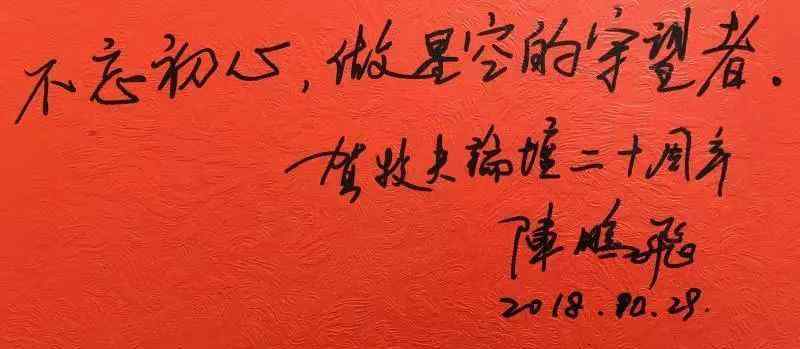 不忘初心，做星空的守望者。
贺牧夫论坛二十周年
陳鹏飛
2018.10.29.